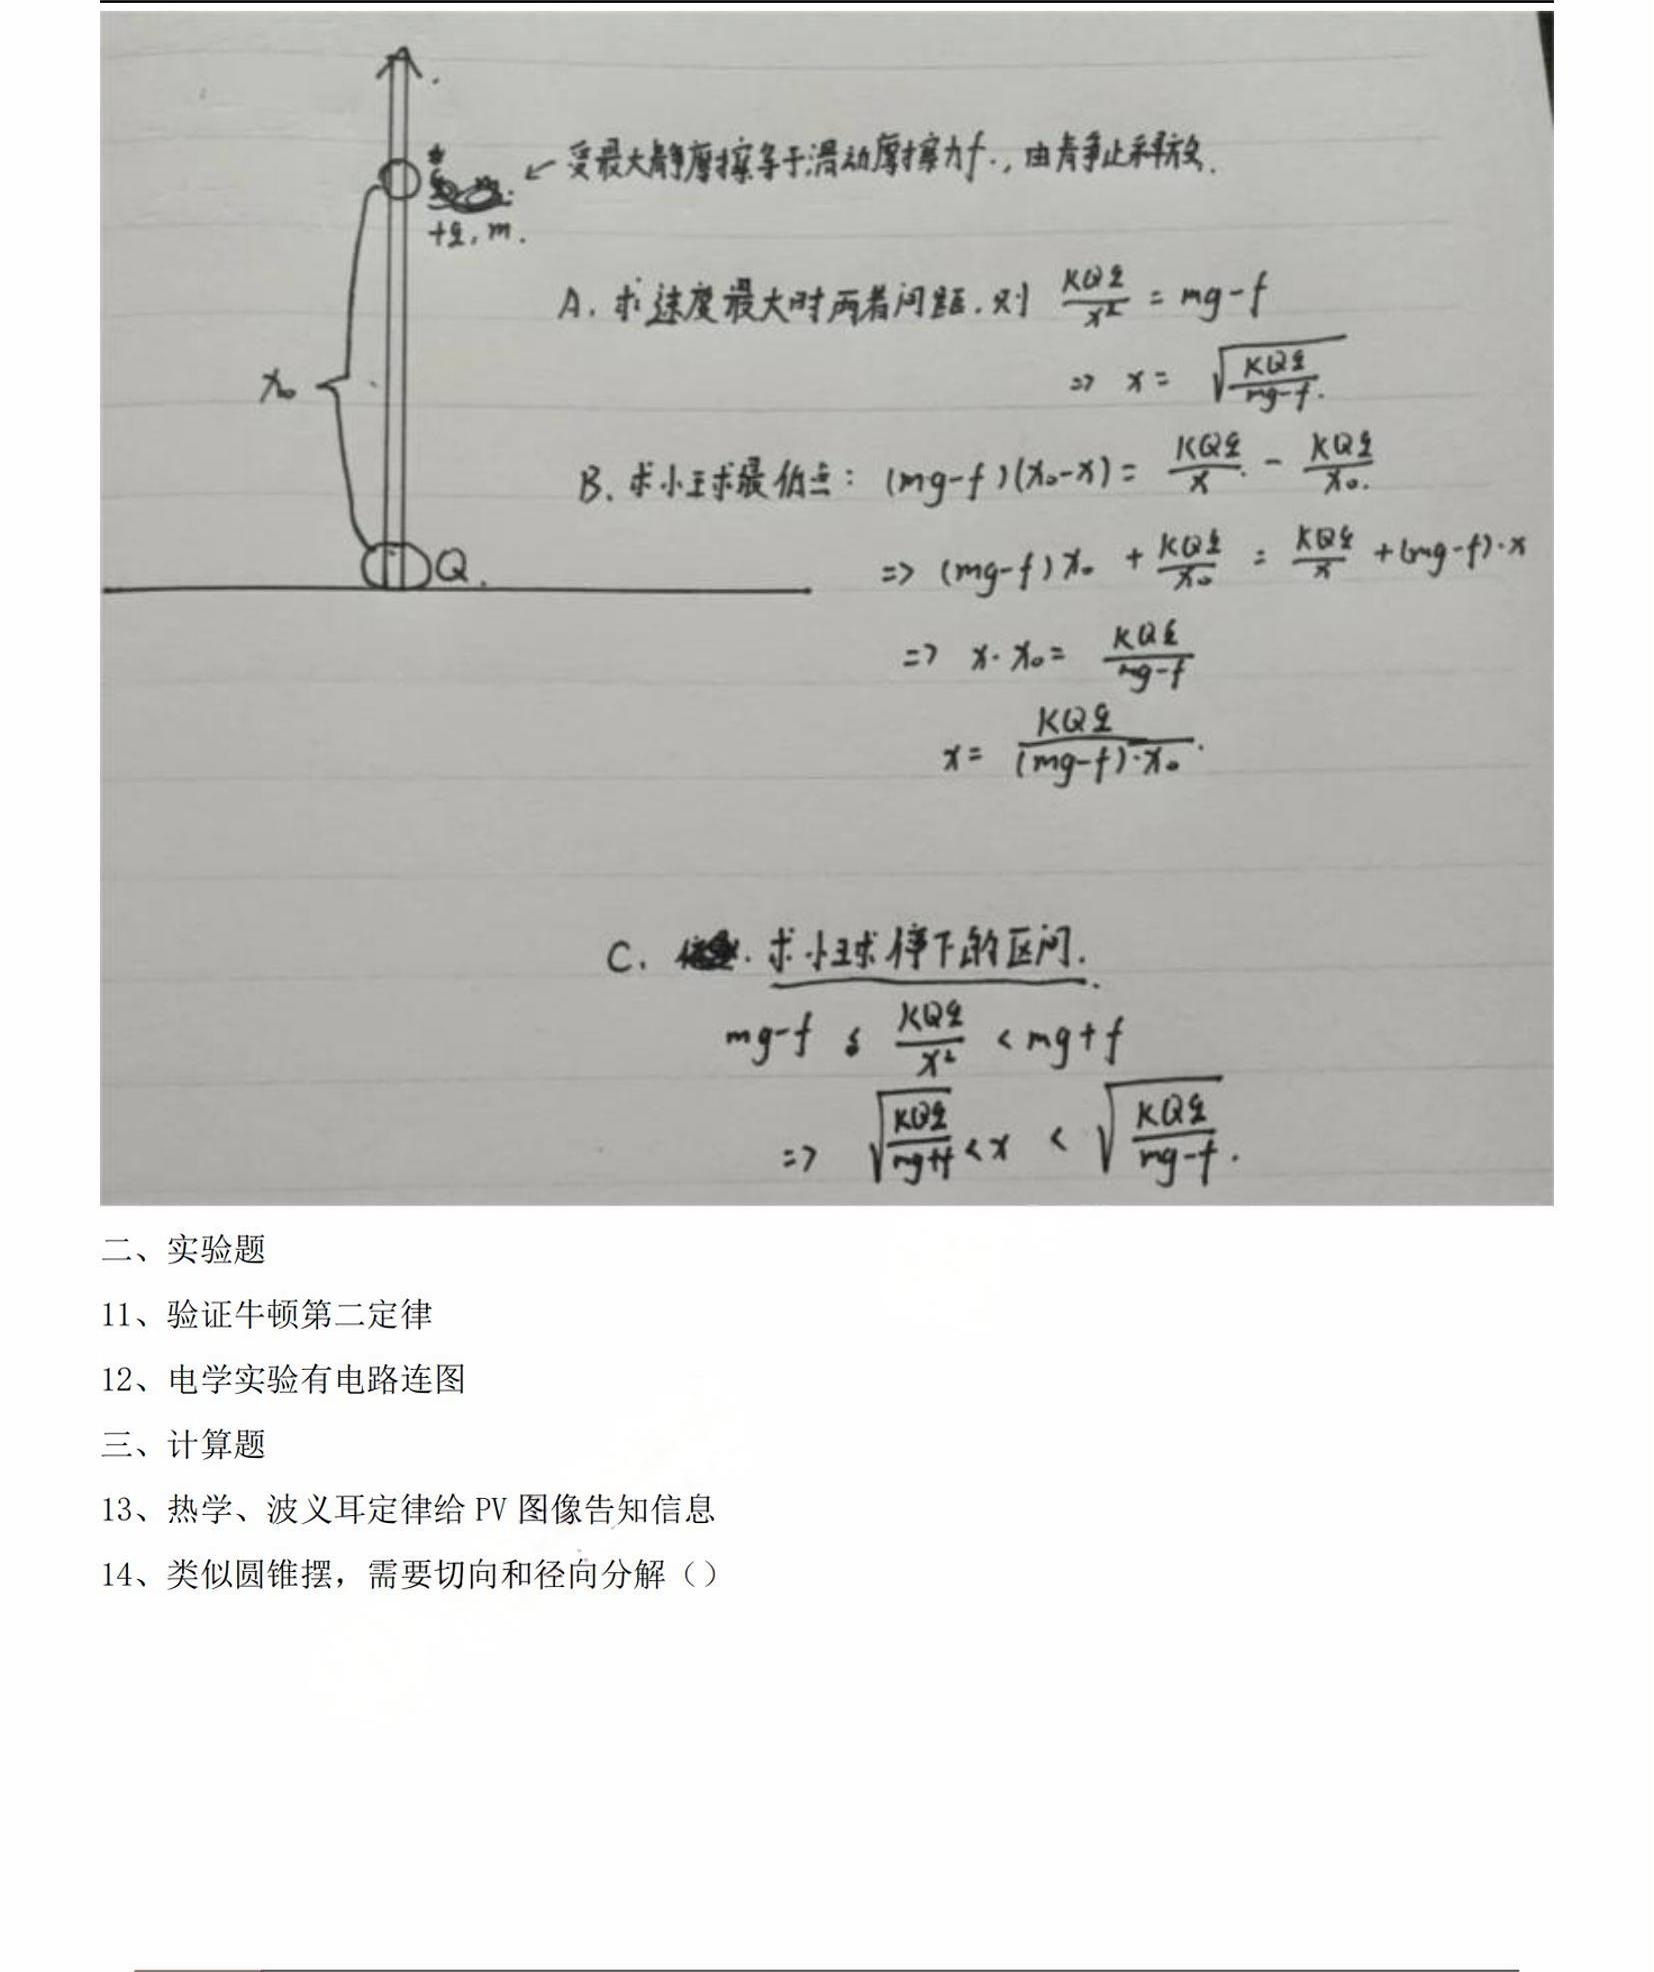 受最大静摩擦等于滑动摩擦力f.，由静止释放.
+q, m.
A. 求速度最大时两者间距. 则 KQq/x² = mg-f
=> x = √(KQq/(mg-f)).
x₀
B. 求小球最低点: (mg-f)(x₀-x) = KQq/x - KQq/x₀.
=> (mg-f)x₀ + KQq/x₀ = KQq/x + (mg-f)·x
Q.
=> x·x₀ = KQq/(mg-f)
x = KQq/((mg-f)·x₀).
C. 求小球停下的区间.
mg-f ≤ KQq/x² < mg+f
=> √(KQq/(mg+f)) < x < √(KQq/(mg-f)).
二、实验题
11、验证牛顿第二定律
12、电学实验有电路连图
三、计算题
13、热学、波义耳定律给 PV 图像告知信息
14、类似圆锥摆，需要切向和径向分解（）